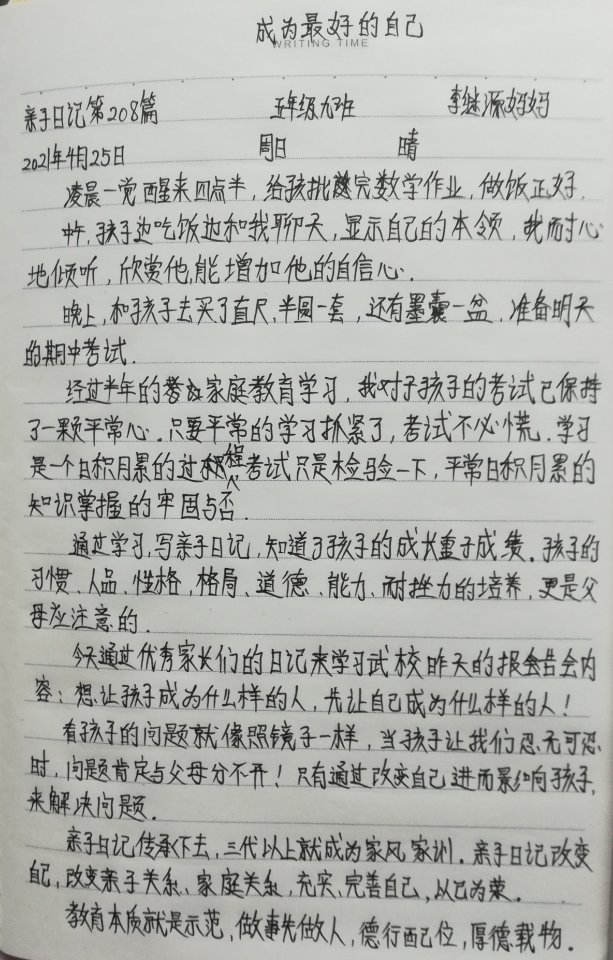 成为最好的自己
WRITING TIME
亲子日记第208篇 五年级九班 李继源妈妈
2021年4月25日 周日 晴
凌晨一觉醒来四点半，给孩批完数学作业，做饭正好.
中午，孩子边吃饭边和我聊天，显示自己的本领，我耐心
地倾听，欣赏他，能增加他的自信心.
晚上，和孩子去买了直尺，半圆一套，还有墨囊一盆，准备明天
的期中考试.
经过半年的家庭教育学习，我对于孩子的考试已保持
了一颗平常心.只要平常的学习抓紧了，考试不必慌.学习
是一个日积月累的过程考试只是检验一下，平常日积月累的
知识掌握的牢固与否.
通过学习，写亲子日记，知道了孩子的成长重于成绩.孩子的
习惯、人品、性格，格局、道德、能力、耐挫力的培养，更是父
母应注意的.
今天通过优秀家长们的日记来学习武校昨天的报告会内
容：想让孩子成为什么样的人，先让自己成为什么样的人！
看孩子的问题就像照镜子一样，当孩子让我们忍无可忍
时，问题肯定与父母分不开！只有通过改变自己进而影响孩子，
来解决问题.
亲子日记传承下去，三代以上就成为家风家训.亲子日记改变
自己，改变亲子关系、家庭关系，充实、完善自己，以己为荣.
教育本质就是示范，做事先做人，德行配位，厚德载物.